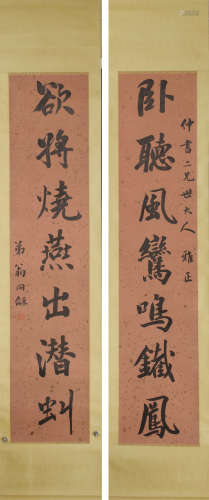 卧聽風鸞鳴鐵鳳
仲書二兄世大人 雅正
欲將燒燕出潛虯
弟翁同龢